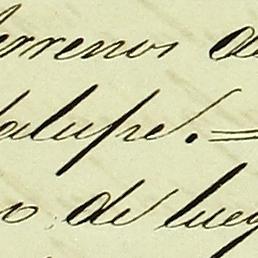 terrenos de
alupe. =
o de lueg